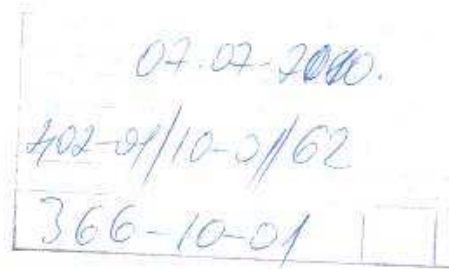 07.07.2010.
402-01/10-01/62
366-10-01